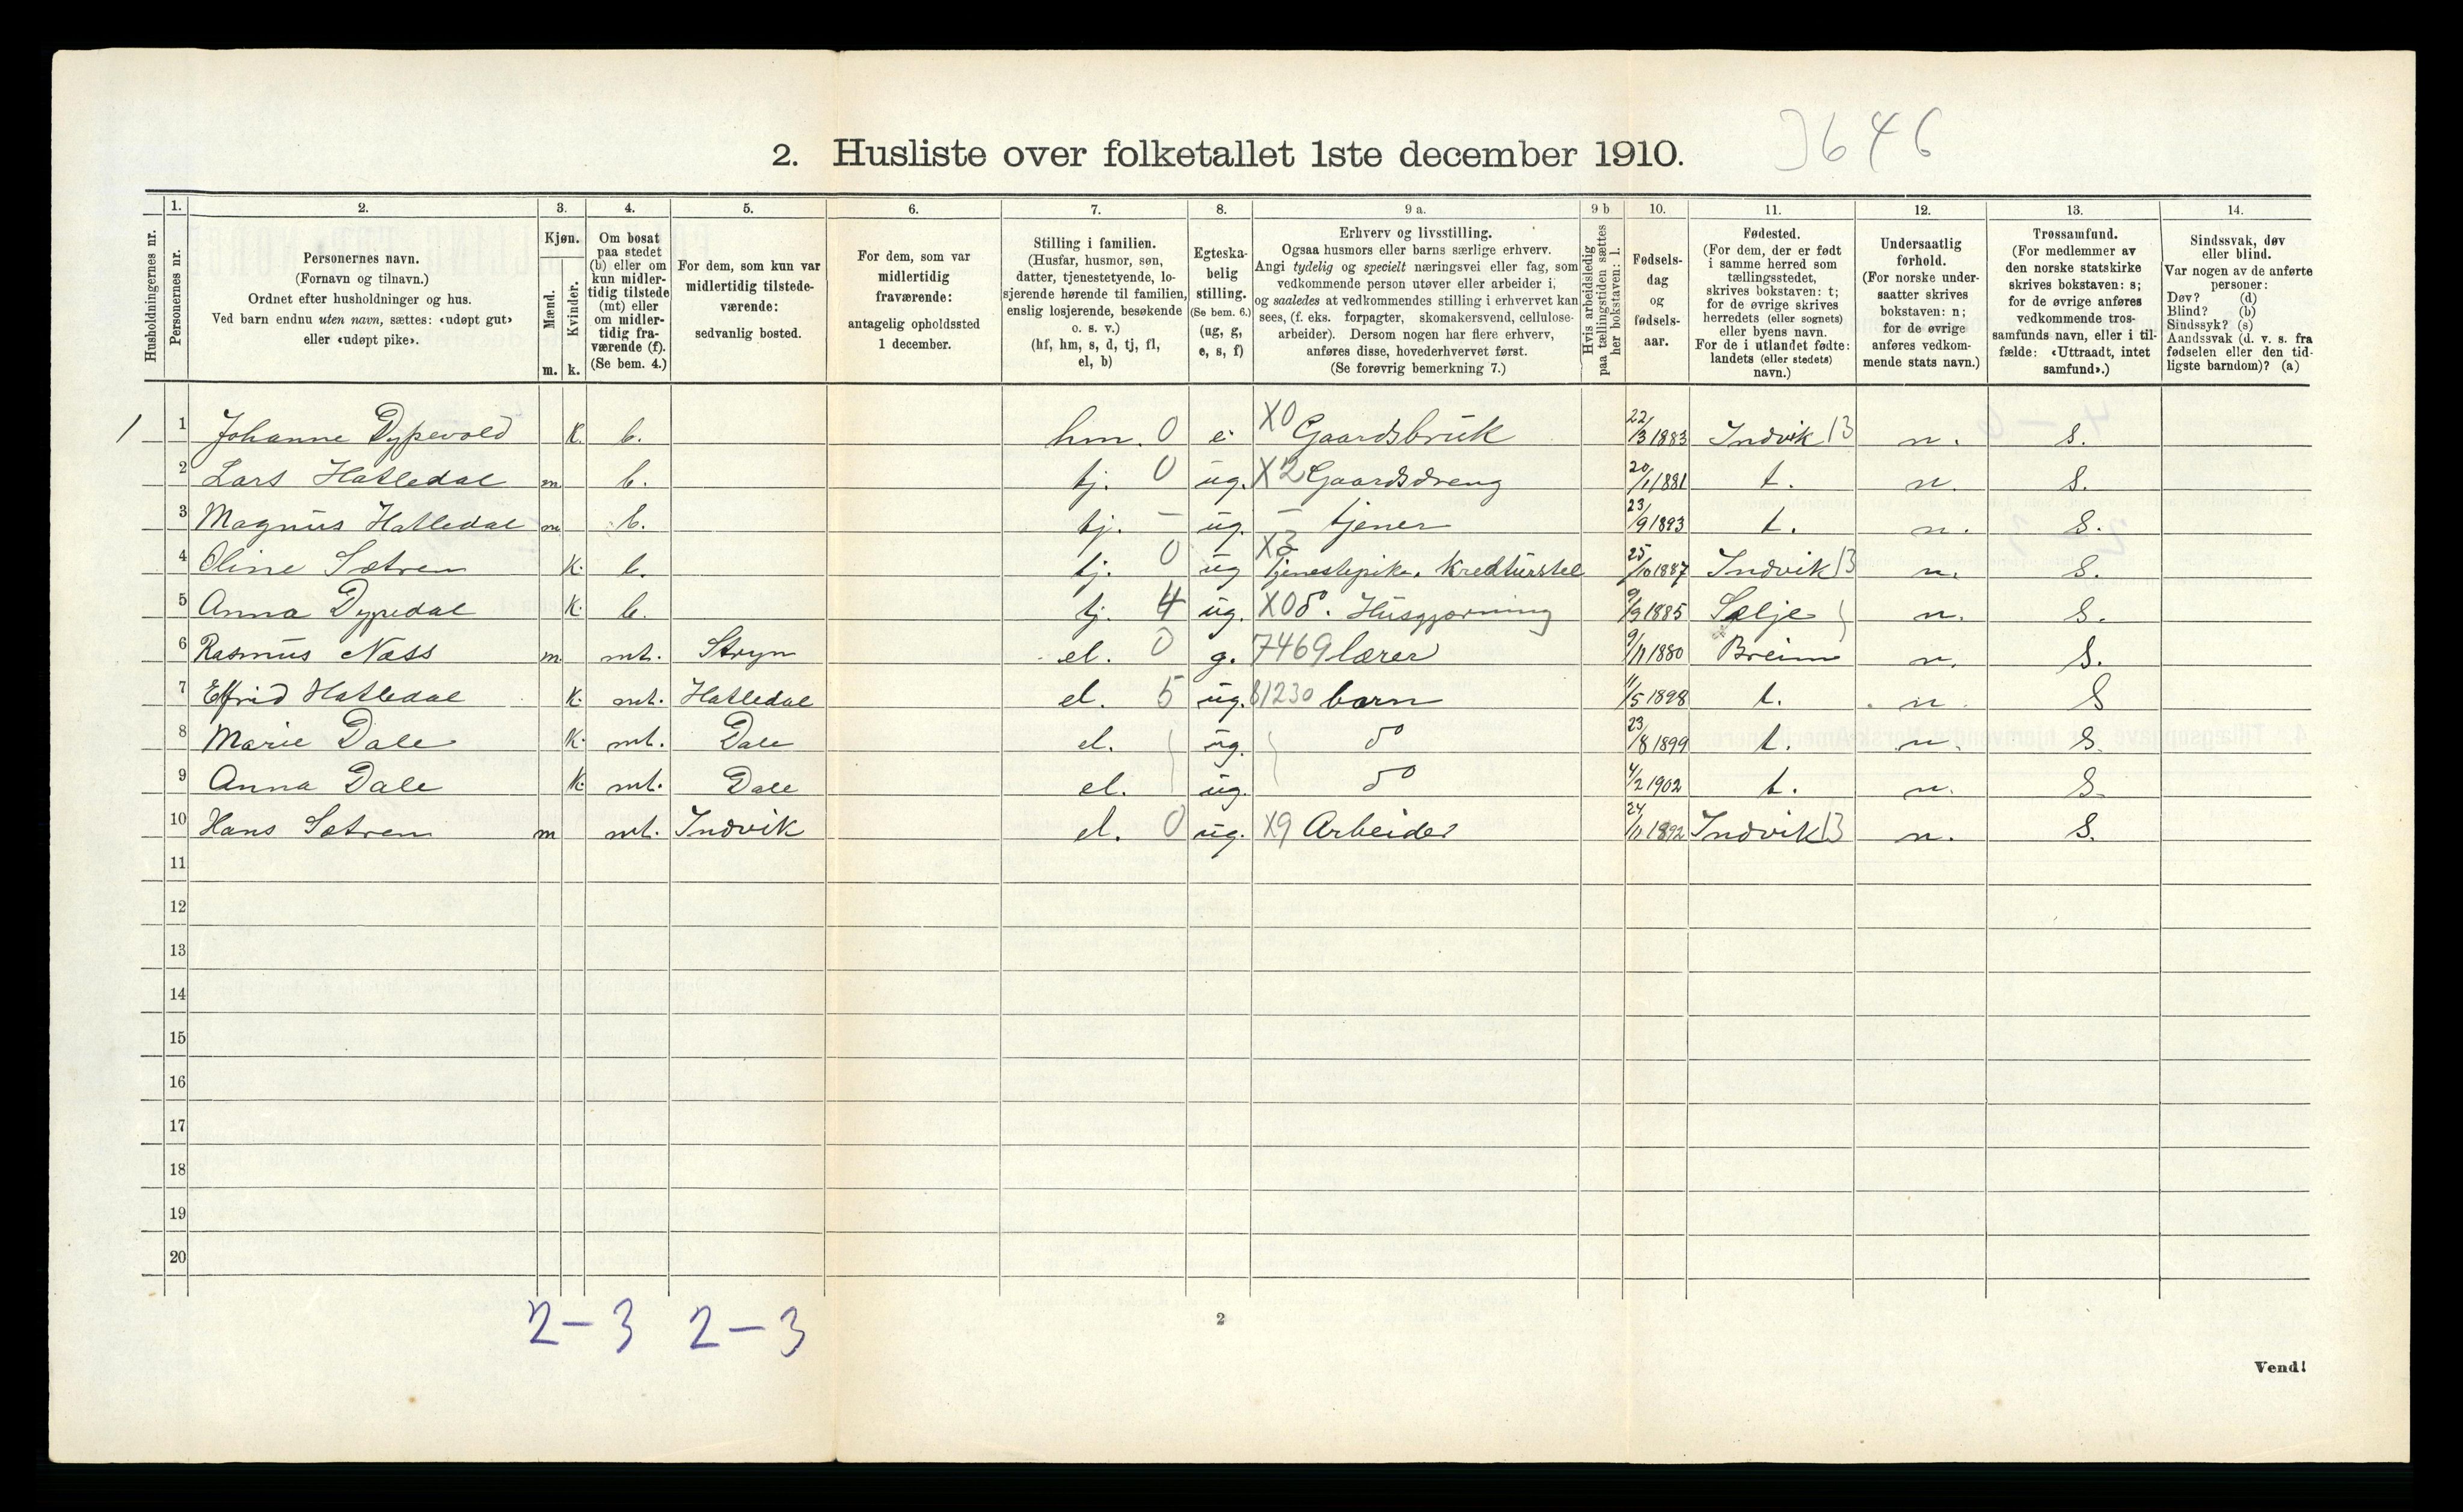 2. Husliste over folketallet 1ste december 1910.
3646
1. 2. 3. 4. 5. 6. 7. 8. 9 a. 9 b 10. 11. 12. 13. 14.
Husholdningernes nr.
Personernes nr.
Personernes navn.
(Fornavn og tilnavn.)
Ordnet efter husholdninger og hus.
Ved barn endnu uten navn, sættes: «udøpt gut»
eller «udøpt pike».
Kjøn.
Mænd.
Kvinder.
m. k.
Om bosat
paa stedet
(b) eller om
kun midler-
tidig tilstede
(mt) eller
om midler-
tidig fra-
værende (f).
(Se bem. 4.)
For dem, som kun var
midlertidig tilstede-
værende:
sedvanlig bosted.
For dem, som var
midlertidig
fraværende:
antagelig opholdssted
1 december.
Stilling i familien.
(Husfar, husmor, søn,
datter, tjenestetyende, lo-
sjerende hørende til familien,
enslig losjerende, besøkende
o. s. v.)
(hf, hm, s, d, tj, fl,
el, b)
Egteska-
belig
stilling.
(Se bem. 6.)
(ug, g,
e, s, f)
Erhverv og livsstilling.
Ogsaa husmors eller barns særlige erhverv.
Angi tydelig og specielt næringsvei eller fag, som
vedkommende person utøver eller arbeider i,
og saaledes at vedkommendes stilling i erhvervet kan
sees, (f. eks. forpagter, skomakersvend, cellulose-
arbeider). Dersom nogen har flere erhverv,
anføres disse, hovederhvervet først.
(Se forøvrig bemerkning 7.)
Hvis arbeidsledig
paa tællingstiden sættes
her bokstaven: l.
Fødsels-
dag
og
fødsels-
aar.
Fødested.
(For dem, der er født
i samme herred som
tællingsstedet,
skrives bokstaven: t;
for de øvrige skrives
herredets (eller sognets)
eller byens navn.
For de i utlandet fødte:
landets (eller stedets)
navn.)
Undersaatlig
forhold.
(For norske under-
saatter skrives
bokstaven: n;
for de øvrige
anføres vedkom-
mende stats navn.)
Trossamfund.
(For medlemmer av
den norske statskirke
skrives bokstaven: s;
for de øvrige anføres
vedkommende tros-
samfunds navn, eller i til-
fælde: «Uttraadt, intet
samfund».)
Sindssvak, døv
eller blind.
Var nogen av de anførte
personer:
Døv? (d)
Blind? (b)
Sindssyk? (s)
Aandssvak (d. v. s. fra
fødselen eller den tid-
ligste barndom)? (a)
1 1 Johanne Dypevold K. b. hm. 0 e. X0 Gaardsbruk 22/3 1883 Indvik 13 n. S.
2 Lars Hatledal m b. tj. 0 ug. X2 Gaardsdreng 20/1 1881 t. n. S.
3 Magnus Hatledal m b. tj. – ug. – tjener 23/9 1893 t. n. S.
4 Oline Sætren K. b. tj. 0 ug X3 Tjenestepike. Kreatturstel 25/10 1887 Indvik 13 n. S.
5 Anna Dypedal K. b. tj. 4 ug. X0 do. Husgjørning 9/9 1885 Selje n. S.
6 Rasmus Næss m mt. Stryn el. 0 g. 7469 lærer 9/11 1880 Breim n. S.
7 Elfrid Hatledal K. mt. Hatledal el. 5 ug. 81230 barn 11/5 1898 t. n. S
8 Marie Dale K. mt. Dale el. ug. do 23/8 1899 t. n. S.
9 Anna Dale K. mt. Dale el. ug. do 4/2 1902 t. n. S.
10 Hans Sætren m mt. Indvik el. 0 ug. X9 Arbeider 24/11 1892 Indvik 13 n. S.
11
12
13
14
15
16
17
18
19
20
2 – 3 2 – 3
2
Vend!